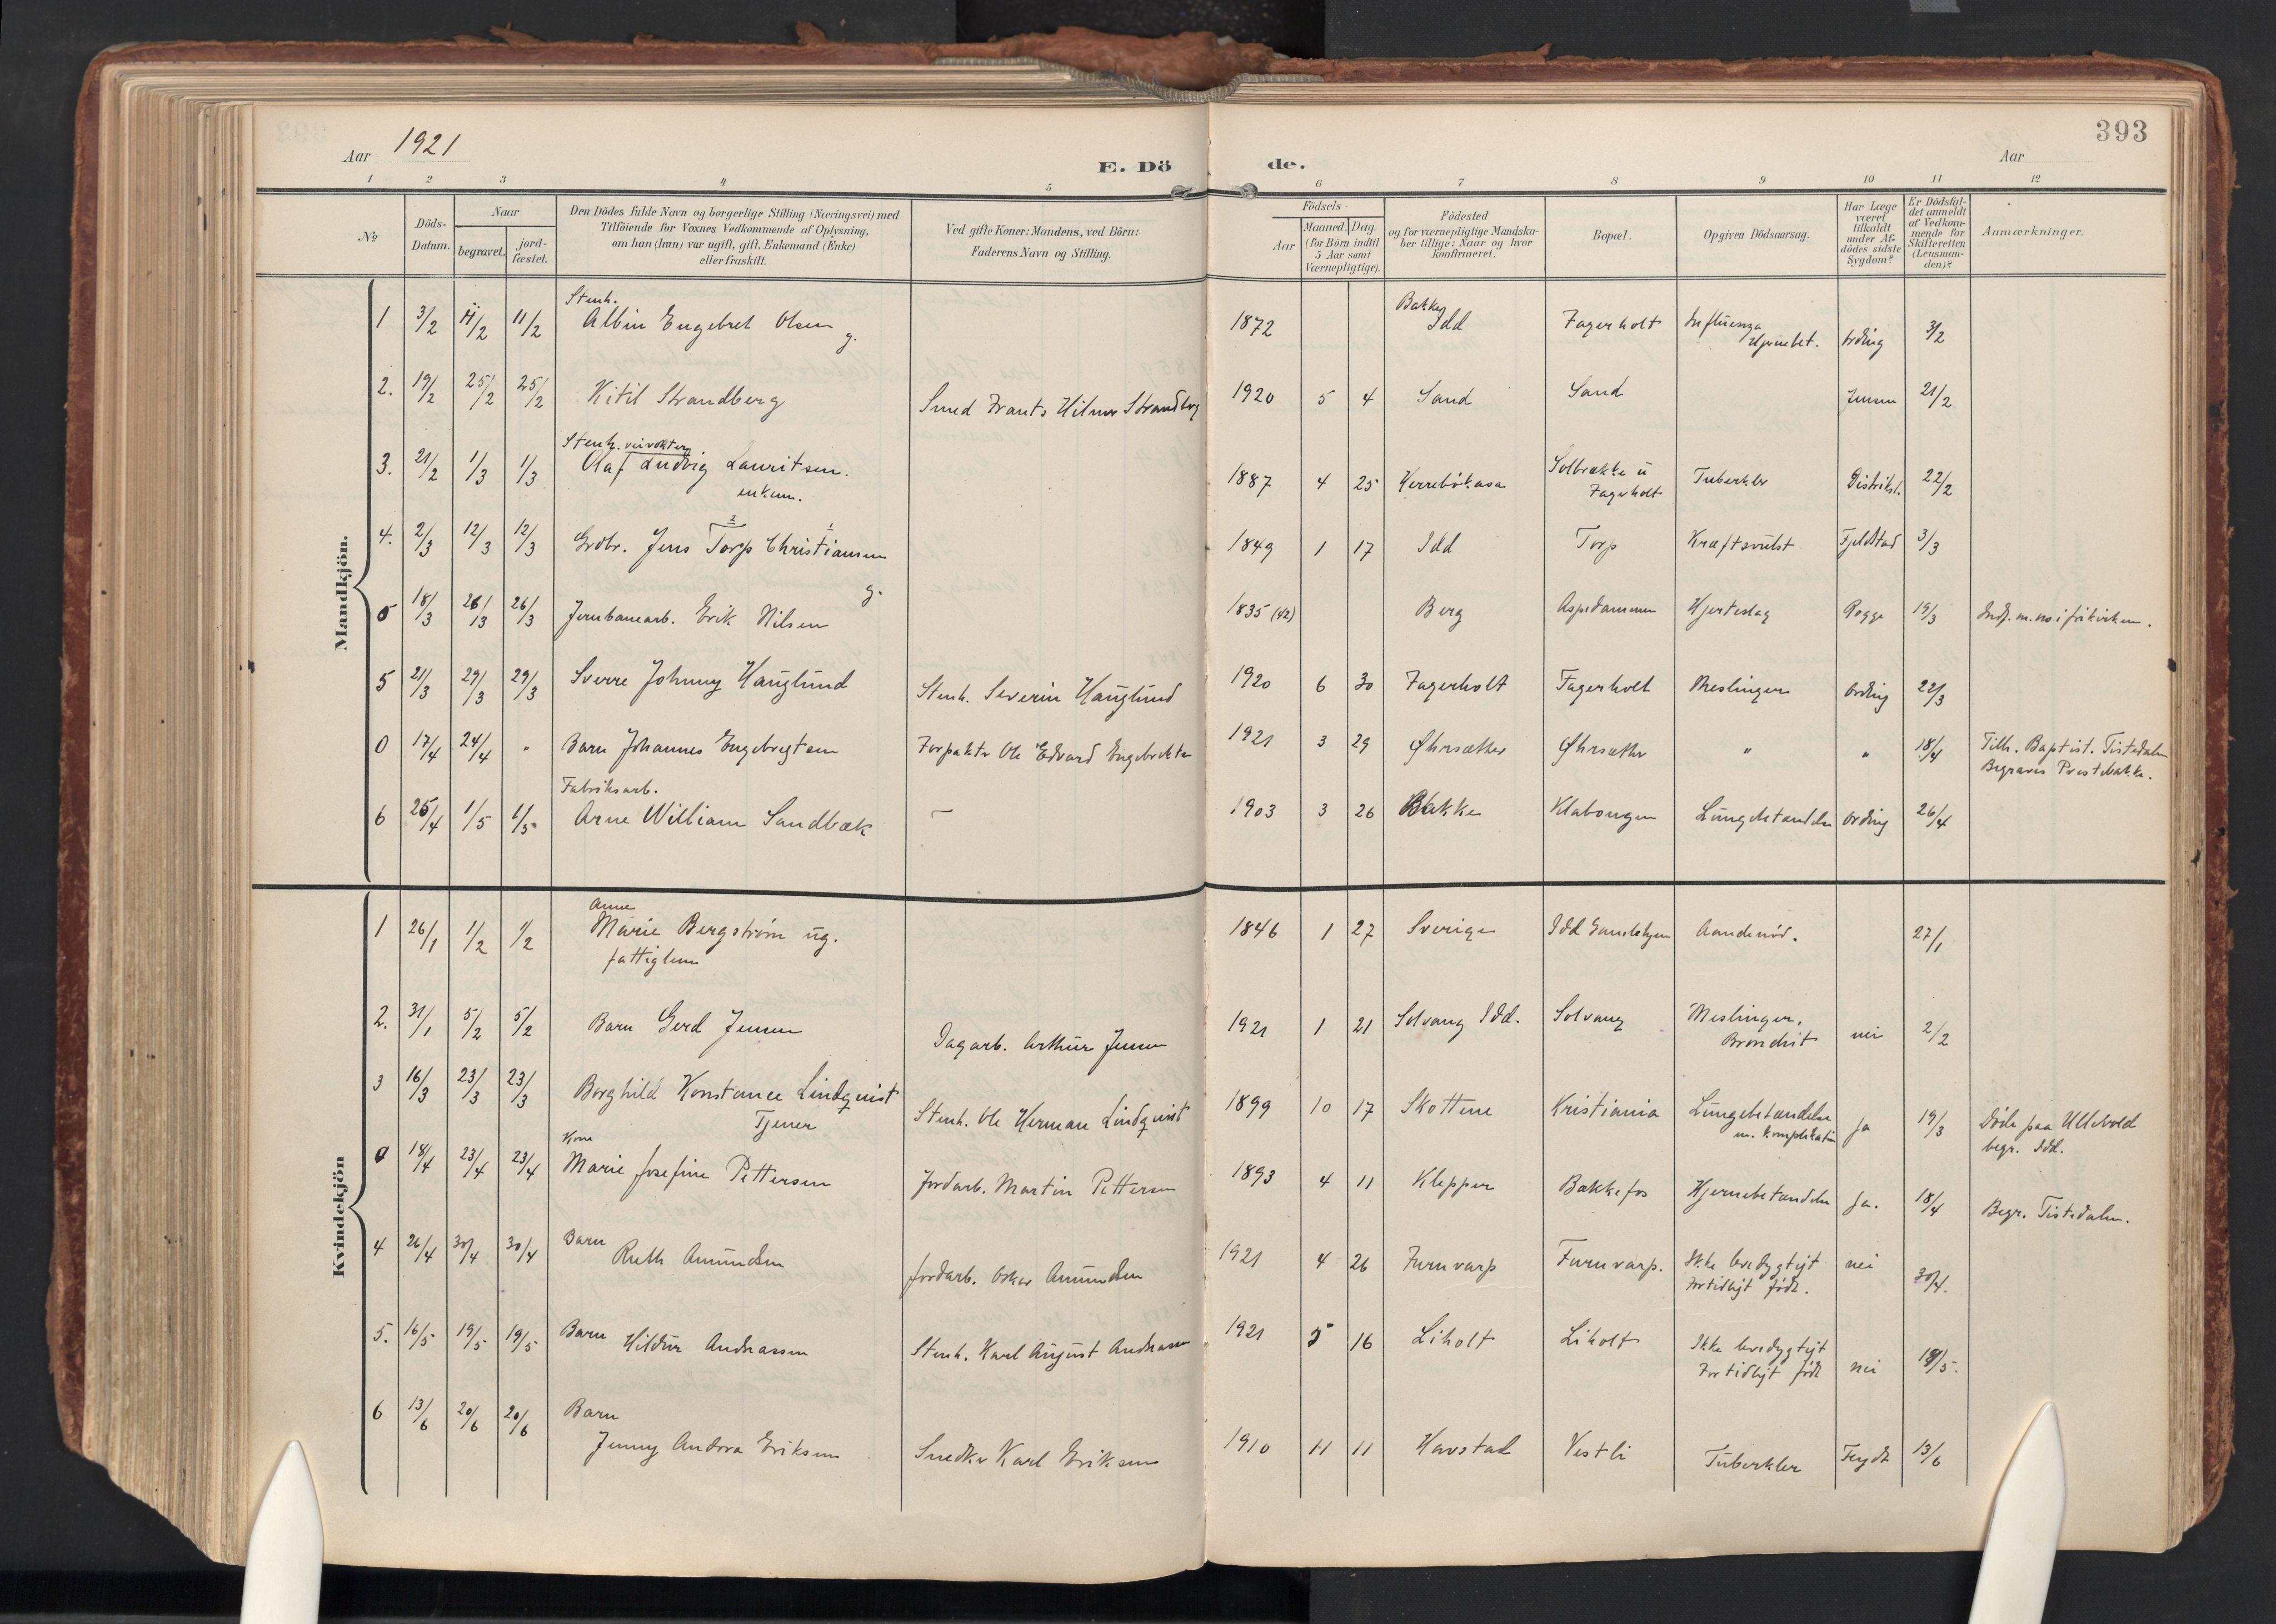 393
Aar 1921
E. Dö de.
Aar
1 2 3 4 5 6 7 8 9 10 11 12
No
Döds-Datum.
Naar
begravet.
jord-fæstet.
Den Dödes fulde Navn og borgerlige Stilling (Næringsvei) med
Tilföiende for Voxnes Vedkommende af Oplysning,
om han (hun) var ugift, gift, Enkemand (Enke)
eller fraskilt.
Ved gifte Koner: Mandens, ved Börn:
Faderens Navn og Stilling.
Födsels-
Aar
Maaned. Dag.
(for Börn indtil
5 Aar samt
Værnepligtige).
Födested
og for værnepligtige Mandska-
ber tillige: Naar og hvor
konfirmeret.
Bopæl.
Opgiven Dödsaarsag.
Har Læge
været
tilkaldt
under Af-
dödes sidste
Sygdom?
Er Dödsfal-
det anmeldt
af Vedkom-
mende for
Skifteretten
(Lensman-
den)?
Anmærkninger.
Mandkjön.
Stenh.
1 3/2 11/2 11/2 Albin Engebret Olsen g. 1872 Bakke Idd Fagerholt Influenza Ording 3/2
2. 19/2 25/2 25/2 Kitil Strandberg Smed Frants Hilmar Strandberg 1920 5 4 Sand Sand Jensen 21/2
Stenh. veivokter
3. 21/2 1/3 1/3 Olaf Ludvig Lauritsen. enkem. 1887 4 25 Solbrekke u Fagerholt Tuberkler Distriktsl. 22/2
4. 2/3 12/3 12/3 Grdbr. Jens Torp Christiansen g. 1849 1 17 Idd Torp Kræftsvulst Fjeldstad 3/3
0 18/3 26/3 26/3 Jernbanearb. Erik Nilsen 1835 (42) Berg Aspedammen Hjerteslag Rogge 19/3
5 21/3 29/3 29/3 Sverre Johnny Hauglund Stenh. Severin Hauglund 1920 6 30 Fagerholt Fagerholt Meslinger Ording 22/3
0 17/4 24/4 " Barn Johannes Engebregtsen Forpakter Ole Edvard Engebretsen 1921 3 29 Øhrsæther Øhrsæther " " 18/4 Tilh. Baptist. Tistedalen
Begraves Prestebakke.
Fabriksarb.
6 25/4 1/5 1/5 Arne William Sandbæk — 1903 3 26 Bakke Klatoungen Lungebetændelse Ording 26/4
Kvindekjön
1 26/1 1/2 1/2 Anne Marie Bergstrøm ug. 1846 1 27 Sverige Idd Gamlehjem Aandenöd. 27/1
fattiglem
2. 31/1 5/2 5/2 Barn Gerd Jensen Dagarb. Arthur Jensen 1921 1 21 Solvang Idd. Solvang Meslinger. Bronchit nei 2/2
3 16/3 23/3 23/3 Borghild Konstance Lindqvist Tjener Stenh. Ole Herman Lindqvist 1899 10 17 Skottene Kristiania Lungebetændelse m. komplikation ja 19/3 Döde paa Ullevold
begr. Idd.
Kone
0 18/4 23/4 23/4 Marie Josefine Pettersen Jordarb. Martin Pettersen 1893 4 11 Klepper Bakkefos Hjernebetændelse Ja. 18/4 Begr. Tistedalen.
4 26/4 30/4 30/4 Barn Ruth Amundsen Jordarb. Oskar Amundsen 1921 4 26 Furuvarp Furuvarp. Ikke levedygtigt
For tidligt född. nei 30/4.
5. 16/5 19/5 19/5 Barn Hildur Andreassen Stenh. Karl August Andreassen 1921 5 16 Liholt Liholt Ikke levedygtigt
For tidligt född nei 19/5.
6 13/6 20/6 20/6 Barn
Jenny Andora Eriksen Snedker Karl Eriksen 1910 11 11 Havstad Vestli Tuberkler Frydt 13/6